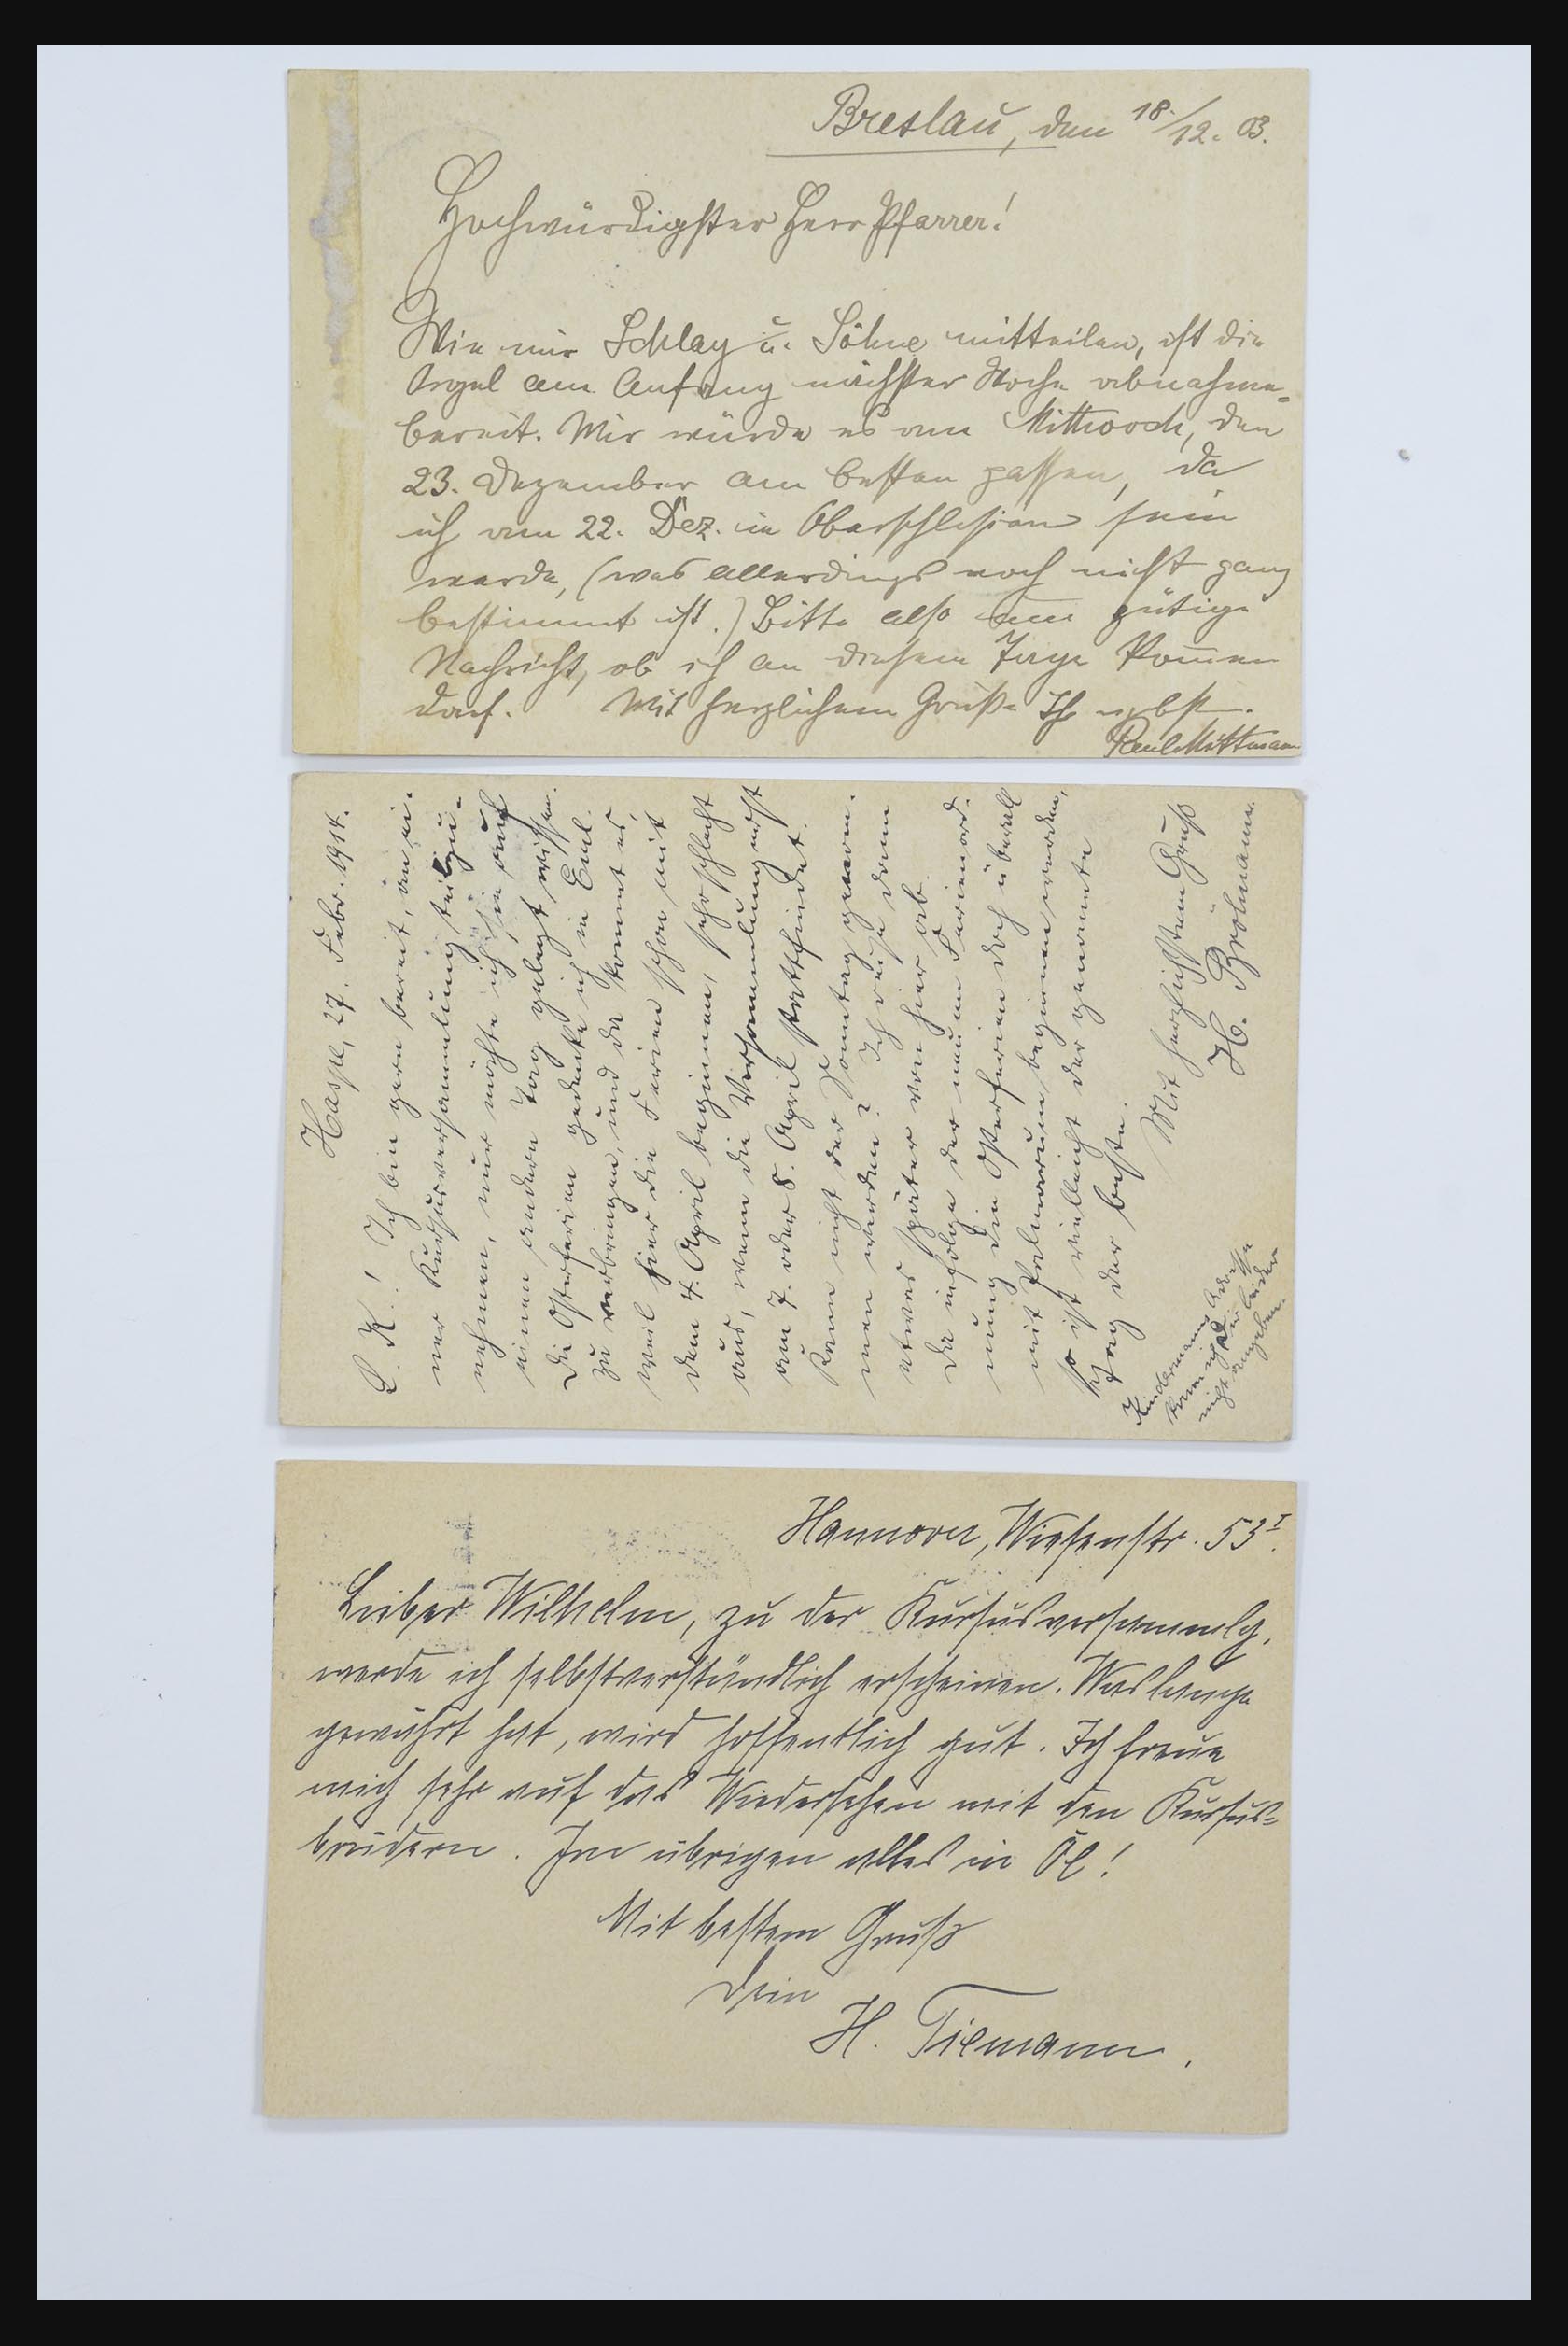 Breslau, den 18./12. 03.
Hochwürdigster Herr Pfarrer!
Wie mir Schlag u. Söhne mitteilen, ist die
Orgel am Anfang nächster Woche abnahme-
bereit. Mir würde es am Mittwoch, den
23. Dezember am besten passen, da
ich am 22. Dez. in Oberschlesien sein
werde, (was allerdings noch nicht ganz
bestimmt ist.) Bitte also um gütige
Nachricht, ob ich an diesem Tage kommen
darf. Mit herzlichem Gruße Ihr
Paul Mittmann
Haspe, 27. Febr. 1914.
L. K.! Ich bin gern bereit, an ei-
ner Kursusversammlung teilzu-
nehmen, nur möchte ich sie auf
einen andern Tag gelegt wissen.
Die Osterferien gedenke ich in Eml.
zu verbringen, und da kommt es,
weil hier die Ferien schon mit
dem 4. April beginnen, sehr schlecht
aus, wenn die Versammlung erst
am 7. oder 8. April stattfindet.
Kann nicht der Sonntag genom-
men werden? Ich reise dann
etwas später von hier ab.
Da infolge der neuen Ferienord-
nung die Osterferien doch überall
mit Palmarum beginnen werden,
so ist vielleicht der genannte
Tag der beste.
Mit herzlichstem Gruß
H. Brölmann.
Kindermanns Adresse
kann ich Dir leider
nicht angeben.
Hannover, Wiesenstr. 53 I.
Lieber Wilhelm, zu der Kursusversammlg.
werde ich selbstverständlich erscheinen. Was lange
gewährt hat, wird hoffentlich gut. Ich freue
mich sehr auf das Wiedersehen mit den Kursus-
brüdern. Im übrigen alles in Öl!
Mit bestem Gruß
Dein
H. Tiemann.